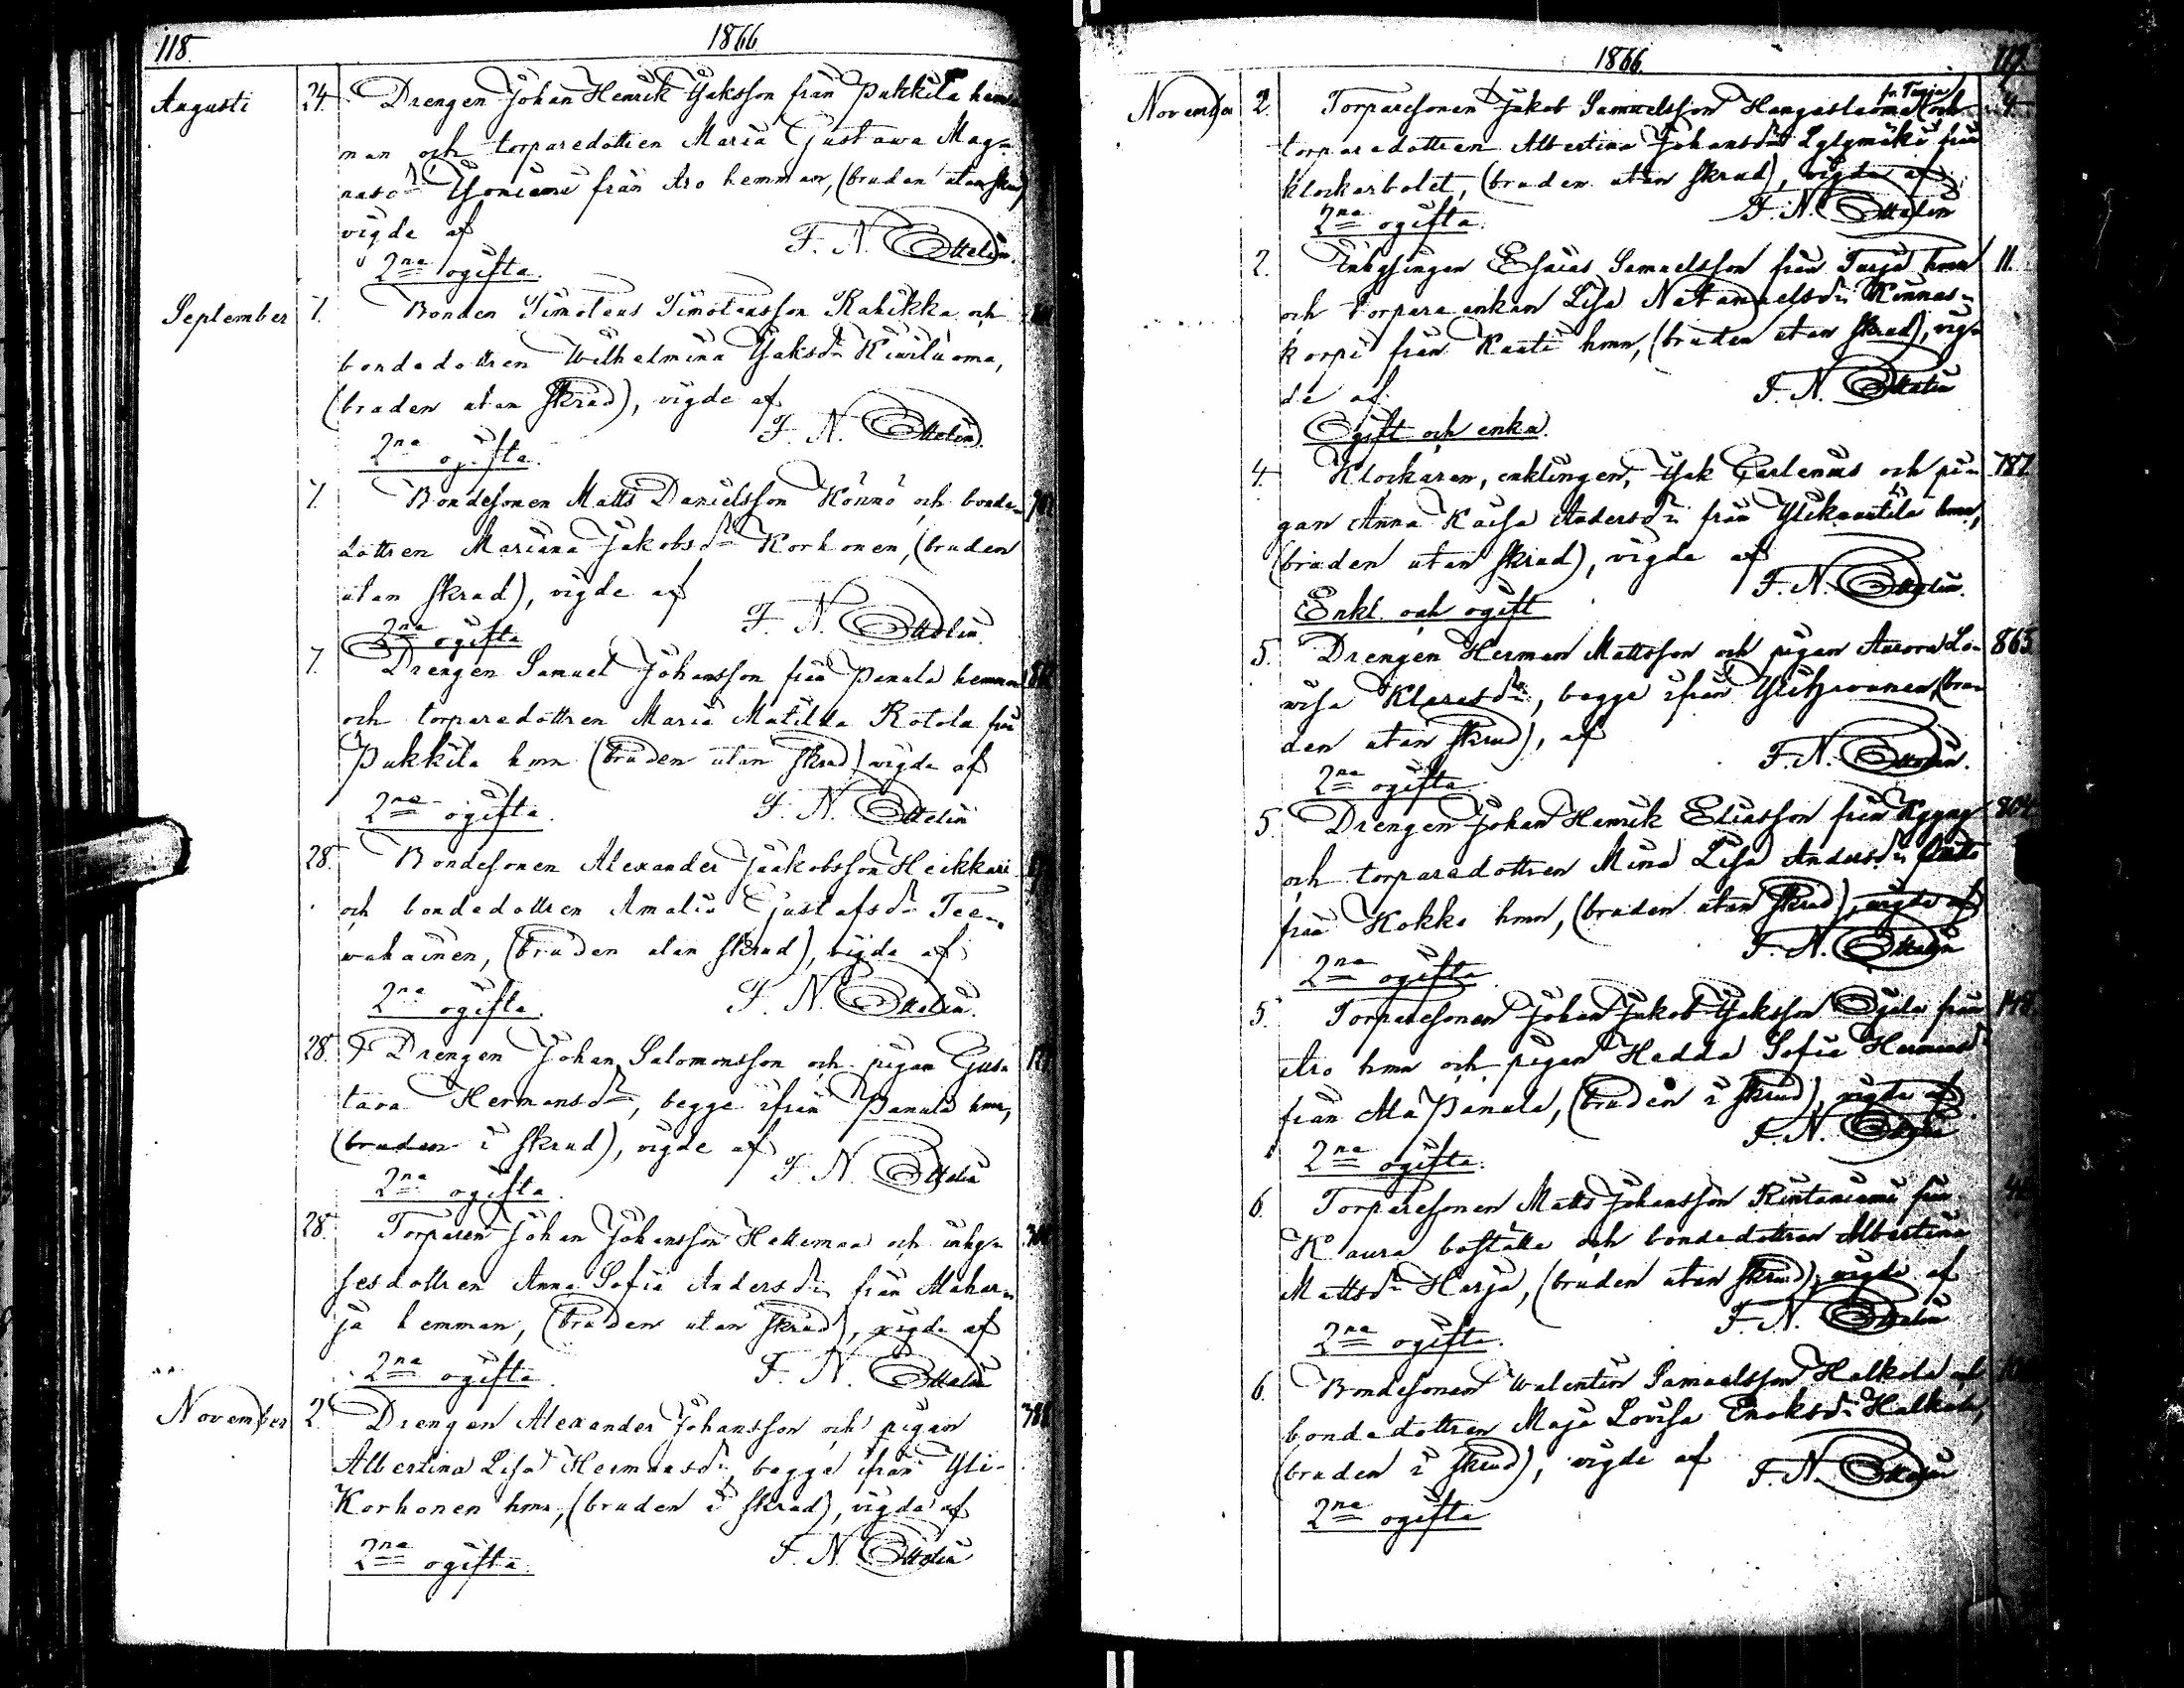 118.
1866
Augusti 24. Drengen Johan Henrik Isaksson från Pukkila hem-
man och torparedottren Maria Gustava Mag-
nusdr från Aro hemman, (bruden utan skrud)
vigde af F. N. Ottelin.
2ne ogifta.
September 7. Bonden Timoteus Timoteusson Rahikka och
bondedottren Wilhelmina Isaksdr Kiviluoma,
(bruden utan skrud), vigde af
F. N. Ottelin.
2ne ogifta.
7. Bondesonen Matts Danielsson Könnö och bonde-
dottren Mariana Jakobsdr Korhonen, (bruden
utan skrud), vigde af
F. N. Ottelin.
2ne ogifta
7. Drengen Samuel Johansson från Panula hemman
och torparedottren Maria Matilda Rotola från
Pukkila hmn (bruden utan skrud) vigde af
2ne ogifta. F. N. Ottelin
28. Bondesonen Alexander Jaakobsson Heikkari
och bondedottren Amalia Gustafsdr Tee-
wahainen, (bruden utan skrud), vigde af
2ne ogifta. F. N. Ottelin.
28. Drengen Johan Salomonsson och pigan Gus-
tava Hermansdr, begge ifrån Panula hmn,
(bruden i skrud), vigde af
F. N. Ottelin
2ne ogifta.
28. Torparen Johan Johansson Hettemaa och inhy-
sesdottren Anna Sofia Andersdr från Alahar-
ja hemman, (bruden utan skrud), vigde af
2ne ogifta. F. N. Ottelin
November 2. Drengen Alexander Johansson och pigan 788
Albertina Lisa Hermansdr, begge ifrån Yli-
Korhonen hmn, (bruden i skrud), vigde af
2ne ogifta. F. N. Ottelin
1866.
November 2. Torparesonen Jakob Samuelsson Hangasluoma fr. Turja och 4
torparedottren Albertina Johansdr Lylymäki från
klockarbolet, (bruden utan skrud), vigde af
2ne ogifta. F. N. Ottelin
2. Inhysingen Esaias Samuelsson från Turja hmn 11.
och torpare enkan Lisa Natanaelsdr Kinnas-
korpi från Raati hmn, (bruden utan skrud), vig-
de af F. N. Ottelin
Ogift och enka.
4. Klockaren, enklingen, Isak Carlenius och pi- 787
gan Anna Kaisa Andersdr från Ylikauttila hmn,
(bruden utan skrud), vigde af
F. N. Ottelin.
Enkl. och ogift
5. Drengen Herman Mattsson och pigan Aurora Lo- 865
wisa Klarasdr, begge ifrån (bru-
den utan skrud), af
F. N. Ottelin.
2ne ogifta
5. Drengen Johan Henrik Eliasson från Kyyny
och torparedottren Mina Lisa Andersdr
från Kokko hmn, (bruden utan skrud), vigde af
F. N. Ottelin
2ne ogifta
5. Torparesonen Johan Jakob Isaksson Ojala från
Aro hmn och pigan Hedda Sofia Hermansdr
från Ala Panula, (bruden i skrud), vigde af
F. N. Ottelin
2ne ogifta.
6. Torparesonen Matts Johansson Rintaniemi från
Kaura boställe och bondedottren Albertina
Mattsdr Harja, (bruden utan skrud), vigde af
F. N. Ottelin
2ne ogifta.
6. Bondesonen Walentin Samuelsson Halkola och
bondedottren Maja Lovisa Enoksdr Halkola,
(bruden i skrud), vigde af
F. N. Ottelin
2ne ogifta